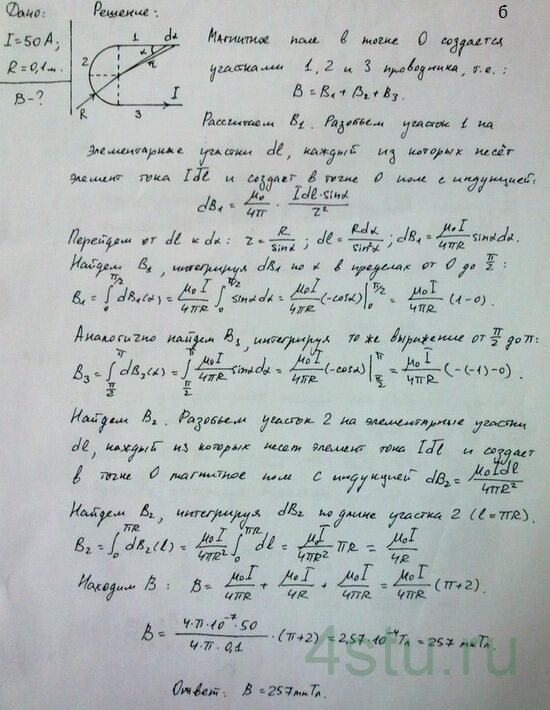 б
Дано:
I = 50 А;
R = 0,1 м.
B - ?
Решение:
1 dl
α
r
2
R
3
I
Магнитное поле в точке О создается
участками 1, 2 и 3 проводника, т.е.:
B = B₁ + B₂ + B₃.
Рассчитаем B₁. Разобьем участок 1 на
элементарные участки dl, каждый из которых несёт
элемент тока Idl и создает в точке О поле с индукцией:
dB₁ = μ₀/4π · Idl·sinα/r²
Перейдем от dl к dα: r = R/sinα; dl = Rdα/sin²α; dB₁ = μ₀I/4πR sinαdα.
Найдем B₁, интегрируя dB₁ по α в пределах от 0 до π/2:
B₁ = ∫₀^π/2 dB₁(α) = μ₀I/4πR ∫₀^π/2 sinαdα = μ₀I/4πR (-cosα)|₀^π/2 = μ₀I/4πR (1-0).
Аналогично найдем B₃, интегрируя то же выражение от π/2 до π:
B₃ = ∫π/2^π dB₃(α) = ∫π/2^π μ₀I/4πR sinαdα = μ₀I/4πR (-cosα)|π/2^π = μ₀I/4πR (-(-1)-0).
Найдем B₂. Разобьем участок 2 на элементарные участки
dl, каждый из которых несет элемент тока Idl и создает
в точке О магнитное поле с индукцией dB₂ = μ₀Idl/4πR²
Найдем B₂, интегрируя dB₂ по длине участка 2 (l = πR).
B₂ = ∫₀^πR dB₂(l) = μ₀I/4πR² ∫₀^πR dl = μ₀I/4πR² πR = μ₀I/4R
Находим B: B = μ₀I/4πR + μ₀I/4R + μ₀I/4πR = μ₀I/4πR (π+2).
B = 4·π·10⁻⁷·50/4·π·0,1 · (π+2) = 2,57·10⁻⁴Тл = 257 мкТл.
4stu.ru
Ответ: B = 257мкТл.